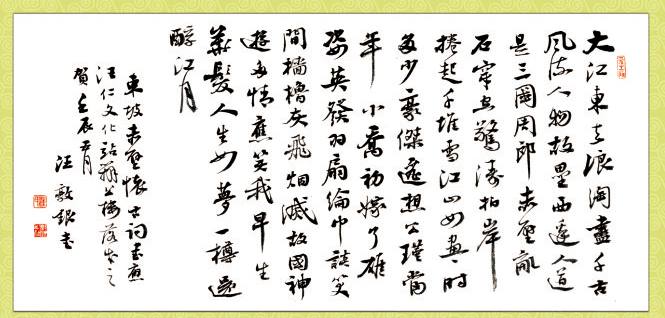 大江東去浪淘盡千古
風流人物故壘西邊人道
是三國周郎赤壁亂
石穿空驚濤拍岸
捲起千堆雪江山如畫一時
多少豪傑遙想公瑾當
年小喬初嫁了雄
姿英發羽扇綸巾談笑
間檣櫓灰飛烟滅故國神
遊多情應笑我早生
華髮人生如夢一樽還
酹江月
東坡赤壁懷古詞書應
汪仁文化站辦公樓落成之
賀壬辰五月
汪敏銀書